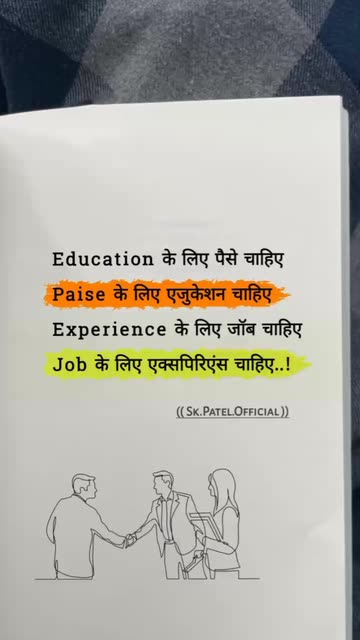 Education के लिए पैसे चाहिए
Paise के लिए एजुकेशन चाहिए
Experience के लिए जॉब चाहिए
Job के लिए एक्सपिरिएंस चाहिए..!
((Sk.Patel.Official))